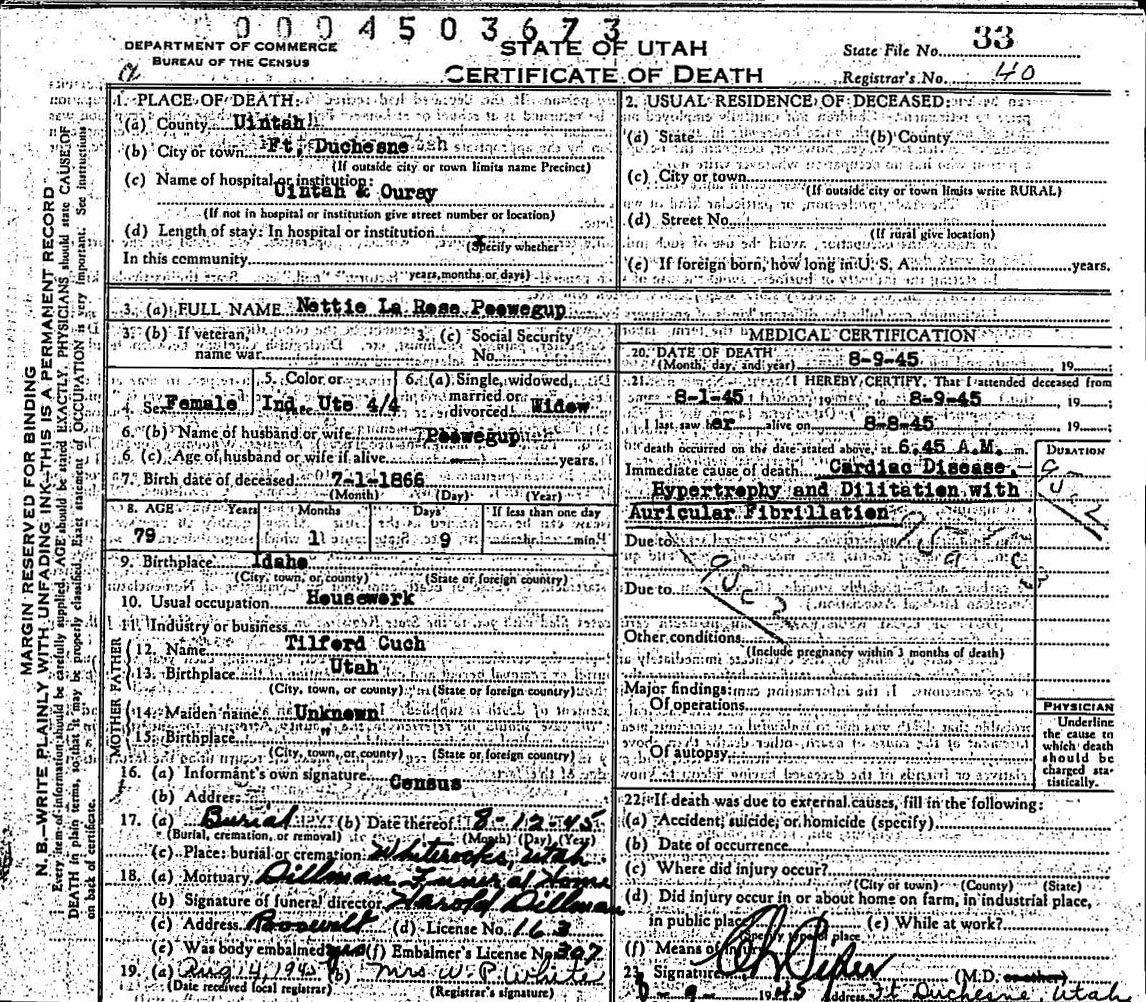 0004503673
DEPARTMENT OF COMMERCE
BUREAU OF THE CENSUS
STATE OF UTAH
CERTIFICATE OF DEATH
State File No. 33
Registrar's No. 40
MARGIN RESERVED FOR BINDING
N. B.—WRITE PLAINLY WITH UNFADING INK—THIS IS A PERMANENT RECORD
Every item of information should be carefully supplied. AGE should be stated EXACTLY. PHYSICIANS should state CAUSE OF
DEATH in plain terms, so that it may be properly classified. Exact statement of OCCUPATION is very important. See instructions
on back of certificate.
1. PLACE OF DEATH:
(a) County Uintah
(b) City or town Ft. Duchesne
(If outside city or town limits name Precinct)
(c) Name of hospital or institution:
Uintah & Ouray
(If not in hospital or institution give street number or location)
(d) Length of stay: In hospital or institution
(Specify whether
In this community
years, months or days)
2. USUAL RESIDENCE OF DECEASED:
(a) State (b) County
(c) City or town
(If outside city or town limits write RURAL)
(d) Street No.
(If rural give location)
(e) If foreign born, how long in U. S. A. years.
3. (a) FULL NAME Nettie La Rose Peewegup
3. (b) If veteran, name war
3. (c) Social Security No.
4. Sex Female
5. Color or race Ind. Ute 4/4
6. (a) Single, widowed, married or divorced Widow
6. (b) Name of husband or wife Peewegup
6. (c) Age of husband or wife if alive — years.
7. Birth date of deceased 7-1-1866
(Month) (Day) (Year)
8. AGE Years Months Days If less than one day
79 1 9 min.
9. Birthplace Idaho
(City, town, or county) (State or foreign country)
10. Usual occupation Housework
11. Industry or business
FATHER
12. Name Tilford Cuch
13. Birthplace Utah
(City, town, or county) (State or foreign country)
MOTHER
14. Maiden name Unknown
15. Birthplace "
(City, town, or county) (State or foreign country)
16. (a) Informant's own signature Census
(b) Address
17. (a) Burial (b) Date thereof 8-12-45
(Burial, cremation, or removal) (Month) (Day) (Year)
(c) Place: burial or cremation Whiterocks, Utah
18. (a) Mortuary Dillman Funeral Home
(b) Signature of funeral director Harold Dillman
(c) Address Roosevelt (d) License No. 163
(e) Was body embalmed yes (f) Embalmer's License No. 307
19. (a) Aug 14, 1945 (b) Mrs W. P. White
(Date received local registrar) (Registrar's signature)
MEDICAL CERTIFICATION
20. DATE OF DEATH
(Month, day, and year) 8-9-45 19 ;
21. I HEREBY CERTIFY, That I attended deceased from
8-1-45 19 to 8-9-45 , 19 ;
I last saw her alive on 8-8-45 , 19 ;
death occurred on the date stated above, at 6:45 A.M. m.
DURATION
Immediate cause of death Cardiac Disease,
Hypertrophy and Dilitation with
Auricular Fibrillation
Due to
Due to
Other conditions
(Include pregnancy within 3 months of death)
Major findings:
Of operations
Of autopsy
PHYSICIAN
Underline
the cause to
which death
should be
charged sta-
tistically.
22. If death was due to external causes, fill in the following:
(a) Accident, suicide, or homicide (specify)
(b) Date of occurrence
(c) Where did injury occur?
(City or town) (County) (State)
(d) Did injury occur in or about home on farm, in industrial place,
in public place (e) While at work?
(f) Means of
23. Signature (M.D.
8 - 9 - 1945 Address Ft Duchesne Utah